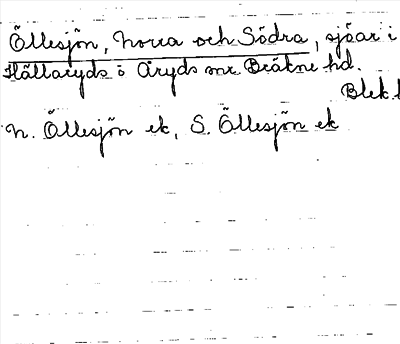 Öllesjön, Norra och Södra, sjöar i
Hällaryds o Åryds snr Bräkne hd.
Blek.l
N. Öllesjön ek, S. Öllesjön ek